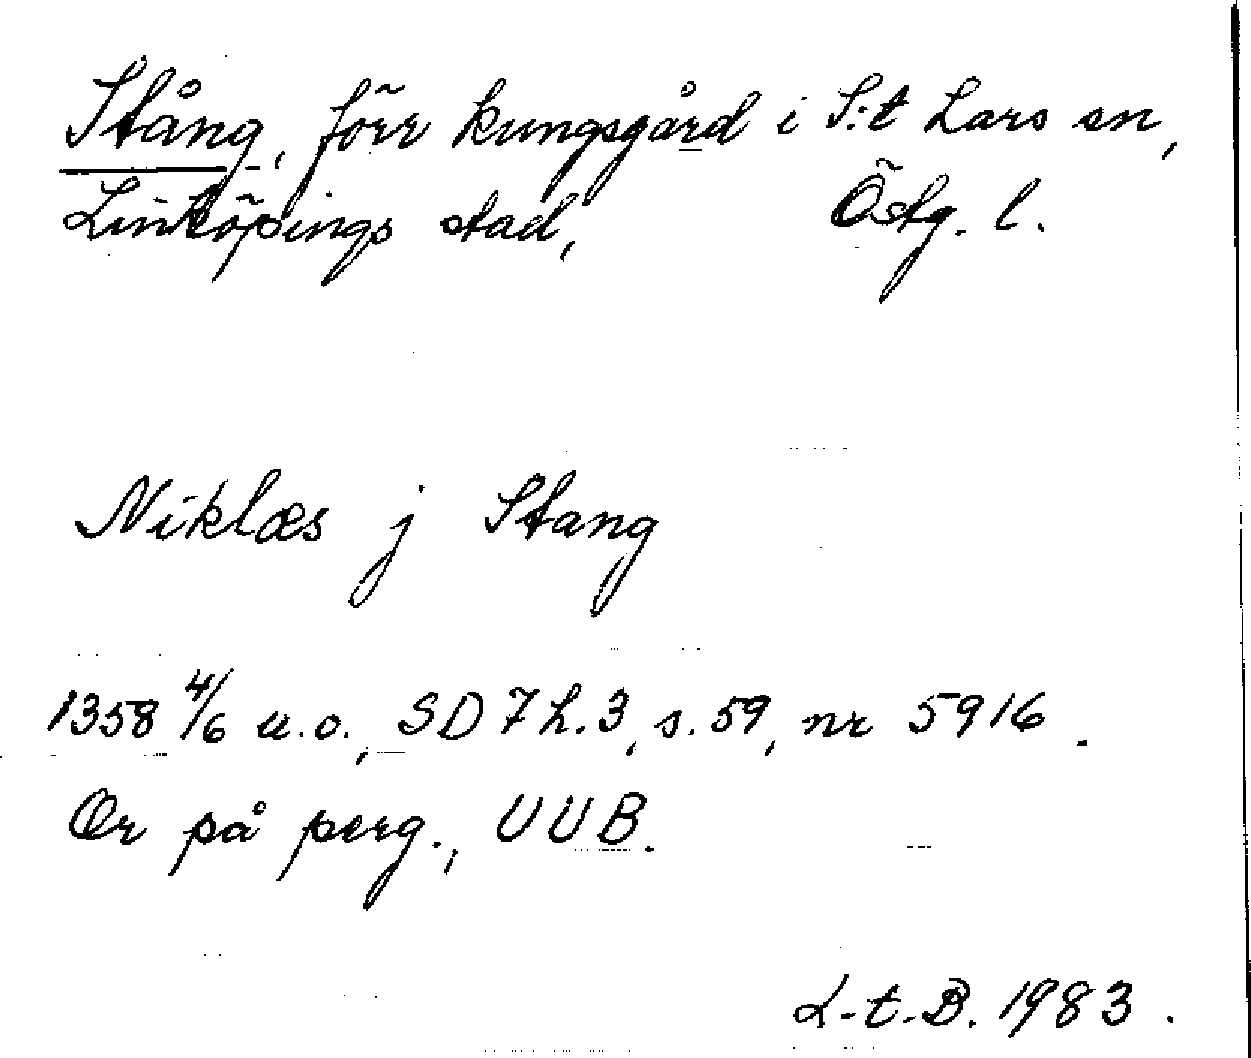 Stång, förr kungsgård i S:t Lars sn,
Linköpings stad, Östg. l.
Niklæs j Stang
1358 4/6 u.o., SD 7 h.3, s.59, nr 5916.
Or på perg., UUB.
L-t-B. 1983.